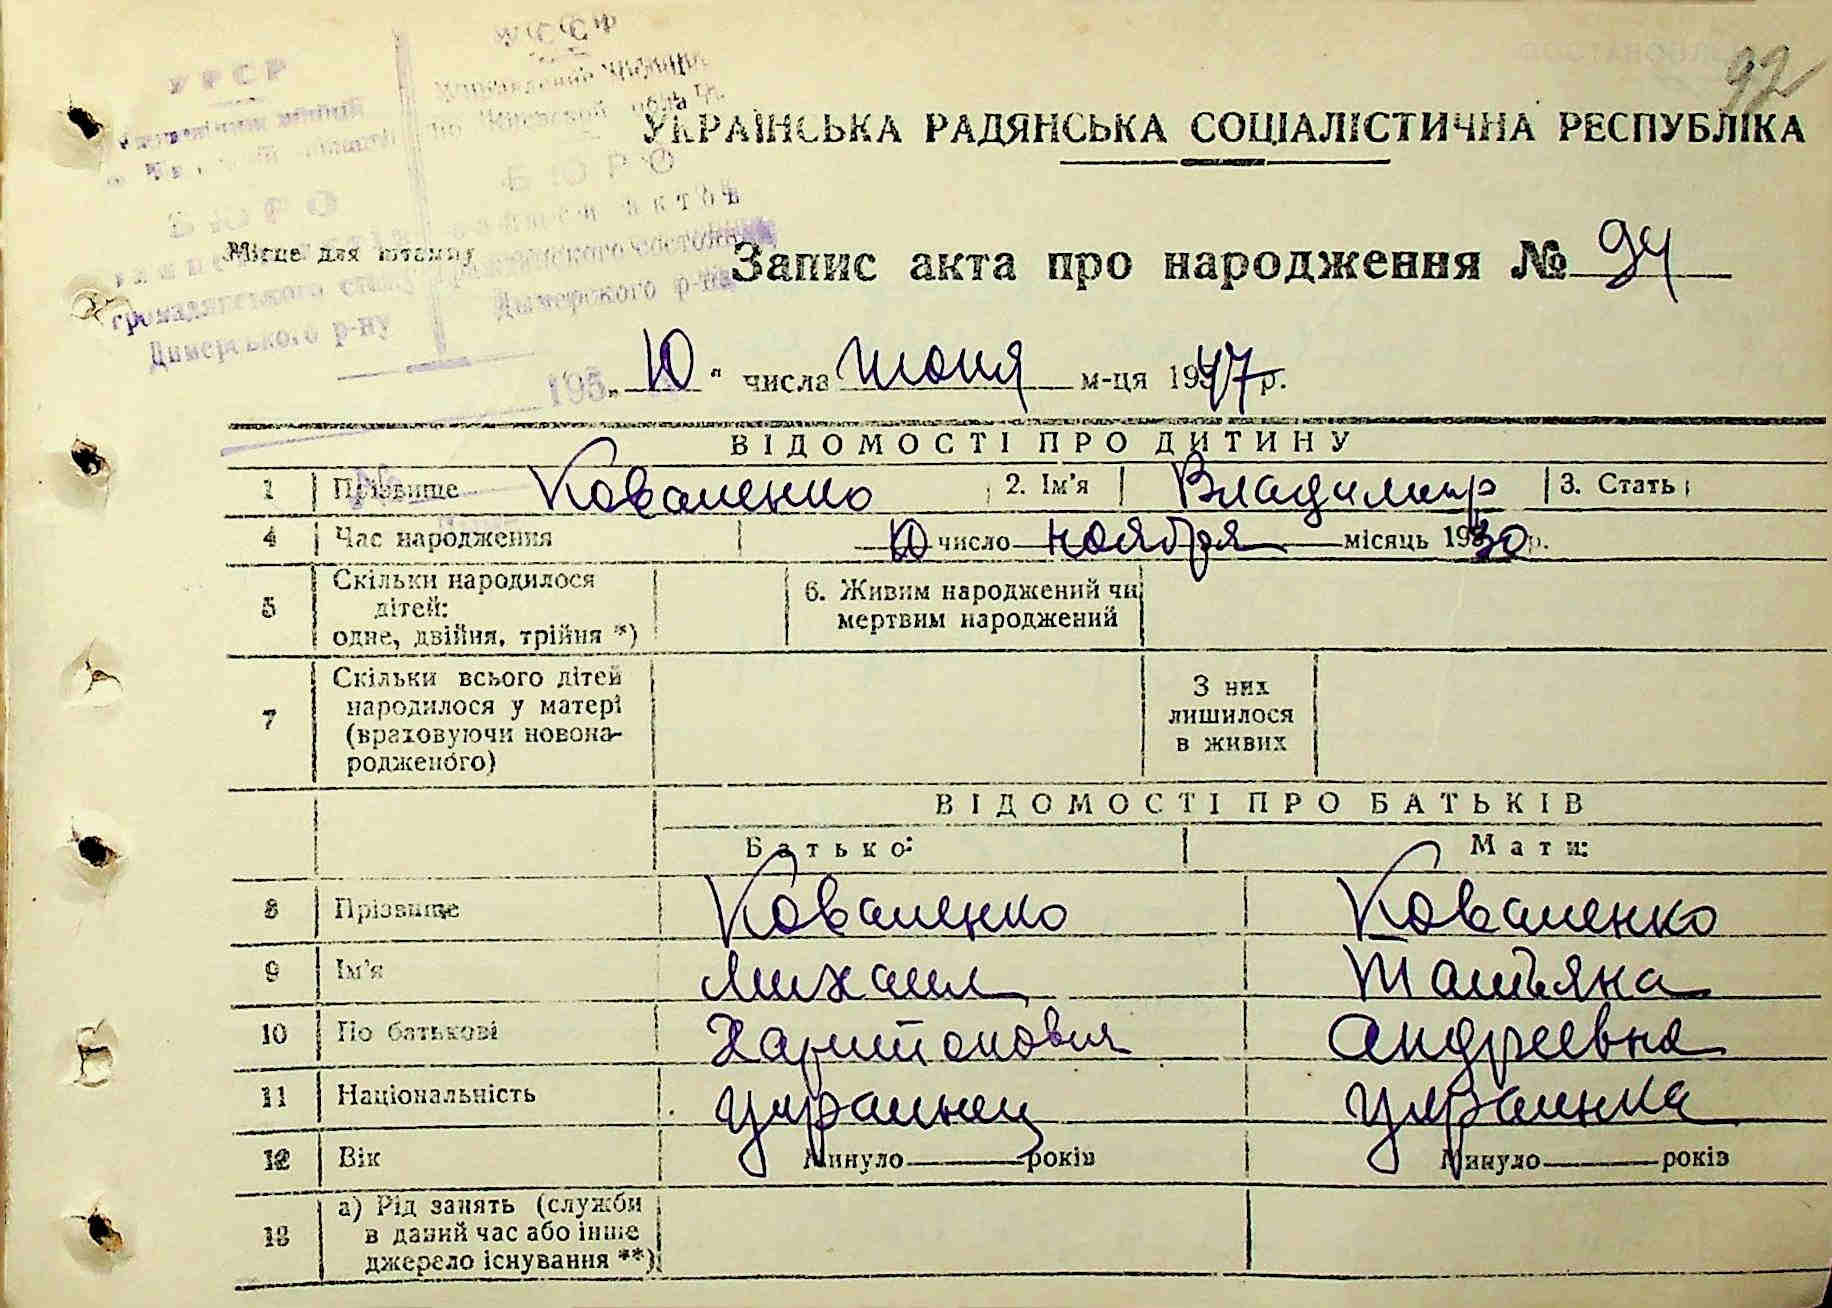 92
УРСР
УССР
БЮРО
БЮРО
громадянського стану
Димерського р-ну
Дымерского р-на
УКРАЇНСЬКА РАДЯНСЬКА СОЦІАЛІСТИЧНА РЕСПУБЛІКА
Місце для штампу
Запис акта про народження № 94
195
„10“ числа июня м-ця 1947 р.
ВІДОМОСТІ ПРО ДИТИНУ
1 Прізвище Коваленко 2. Ім'я Владимир 3. Стать
4 Час народження 10 число ноября місяць 1930 р.
5 Скільки народилося дітей: одне, двійня, трійня *) 6. Живим народжений чи мертвим народжений
7 Скільки всього дітей народилося у матері (враховуючи новонародженого) З них лишилося в живих
ВІДОМОСТІ ПРО БАТЬКІВ
Батько: Мати:
8 Прізвище Коваленко Коваленко
9 Ім'я Михаил Татьяна
10 По батькові Харитонович Андреевна
11 Національність украинец украинка
12 Вік Минуло років Минуло років
13 а) Рід занять (служби в даний час або інше джерело існування **)